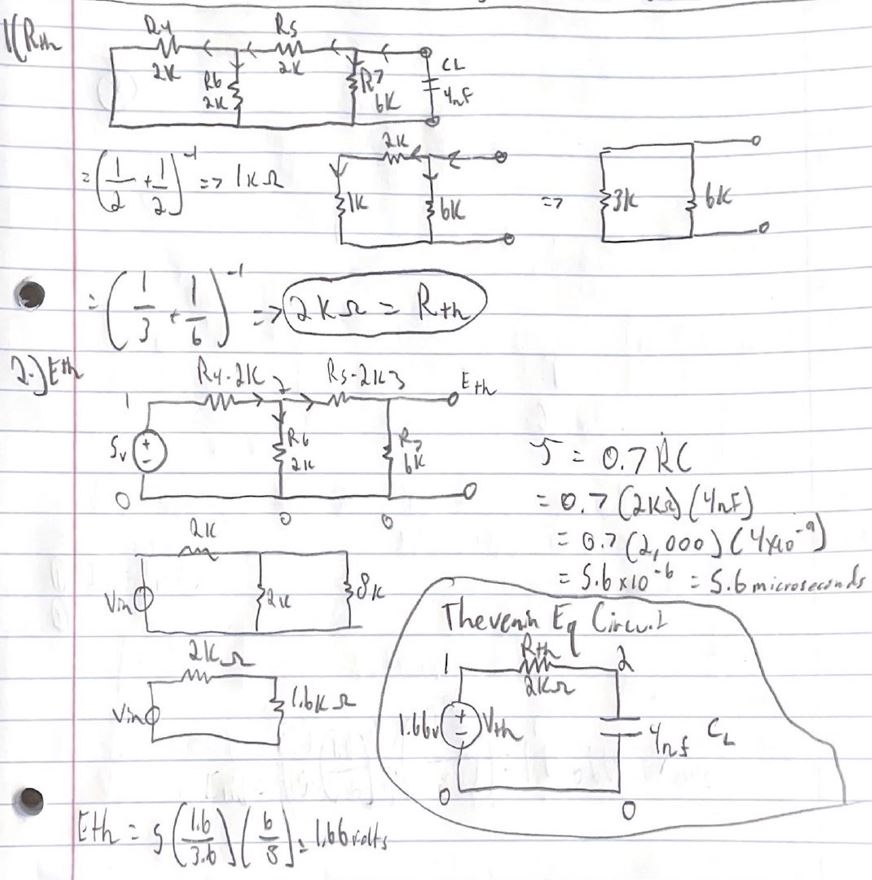 1( Rth
R4 R5
2K R6 2K R7 CL
2K 6K 4nF
= (1/2 + 1/2)^-1 => 1KΩ
2K
1K 6K => 3K 6K
= (1/3 + 1/6)^-1 => 2KΩ = Rth
2.) Eth
R4-2K 2 R5-2K 3 Eth
1
5v + - R6 2K R7 6K
0 0 0
τ = 0.7 RC
= 0.7 (2KΩ) (4nF)
= 0.7 (2,000) (4x10^-9)
= 5.6 x10^-6 = 5.6 microseconds
2K
Vin 2K 8K
2KΩ
Vin 1.6KΩ
Thevenin Eq Circuit
1 Rth 2
2KΩ
1.66v + - Vth 4nf CL
0 0
Eth = 5 (1.6/3.6) (6/8) = 1.66 volts